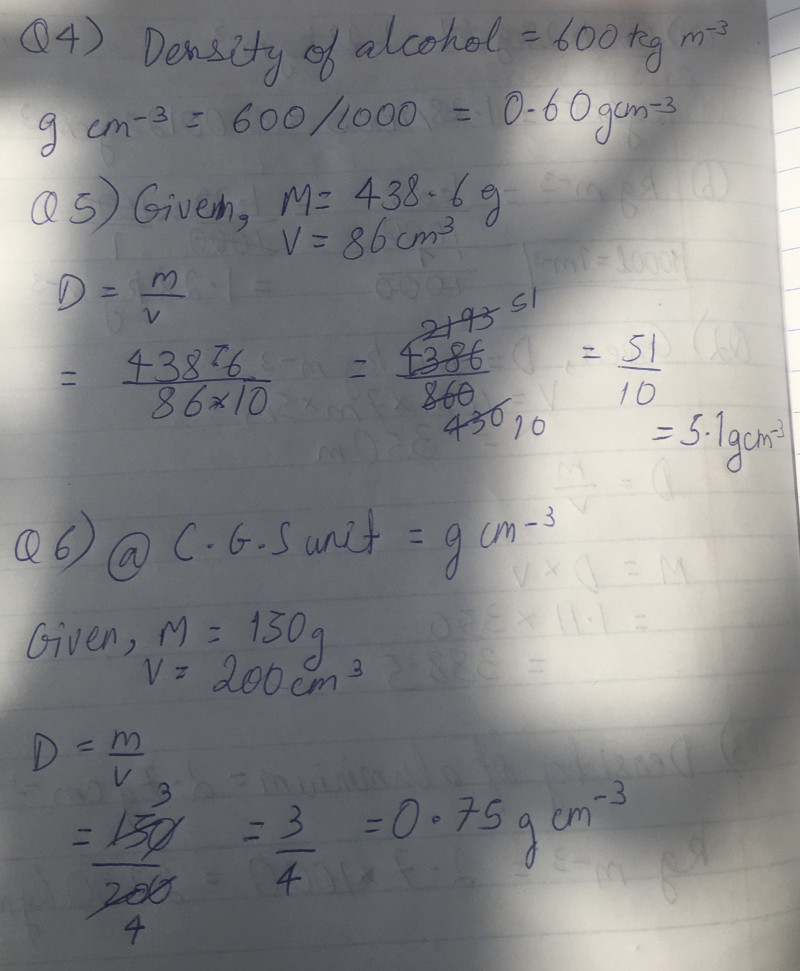 Q4) Density of alcohol = 600 kg m⁻³
g cm⁻³ = 600/1000 = 0.60 gcm⁻³
Q5) Given, M = 438.6 g
V = 86 cm³
D = m/v
= 4386/86×10 = 4386/860 = 51/10
2193 51
430 10
= 5.1 gcm⁻³
Q6) ⓐ C.G.S unit = g cm⁻³
Given, M = 150g
V = 200 cm³
D = m/v
= 150/200 = 3/4 = 0.75 g cm⁻³
3
4